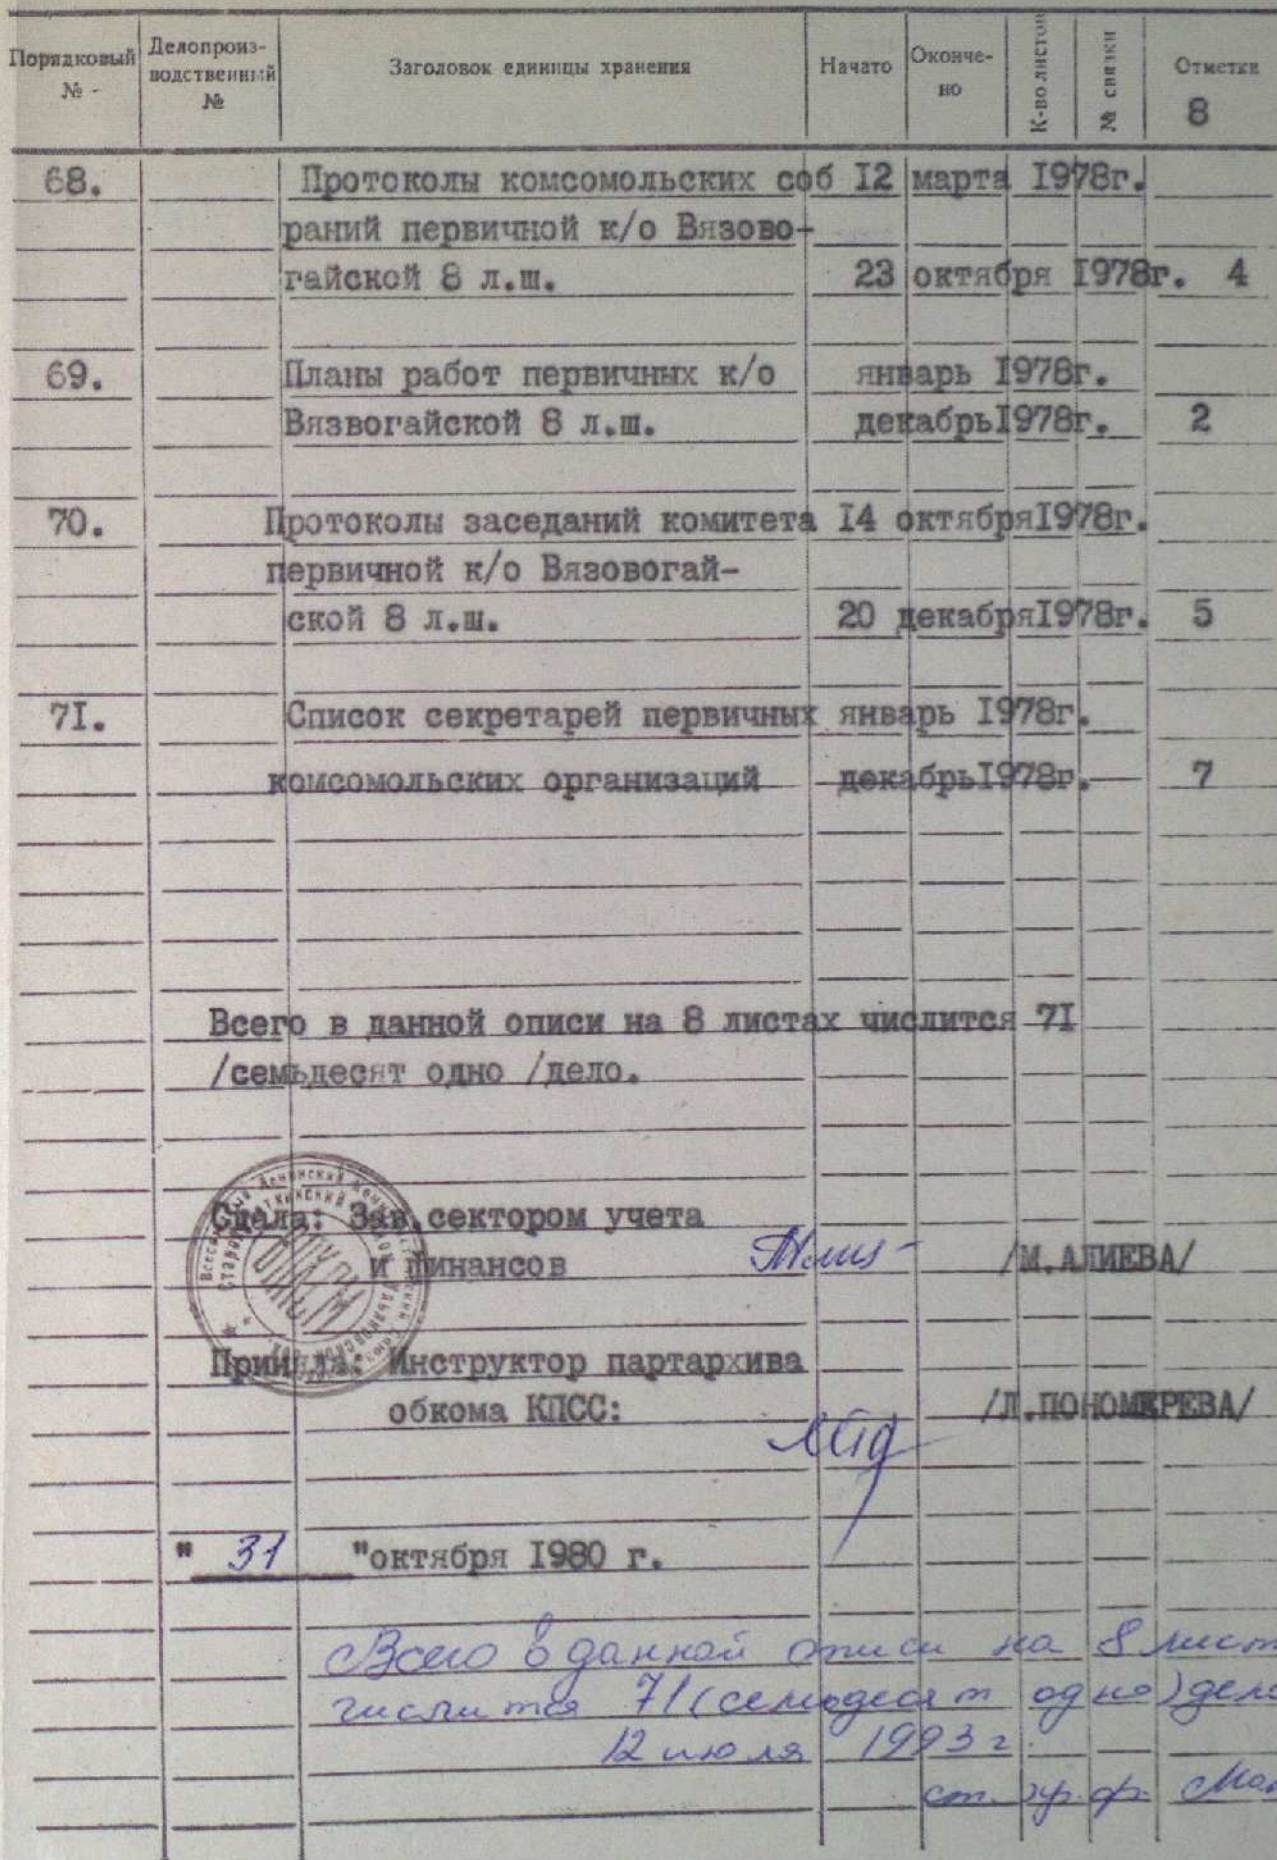 Порядковый № - Делопроиз-водственный № Заголовок единицы хранения Начато Окончено К-во листов № связки Отметки
8
68. Протоколы комсомольских соб 12 марта 1978г.
раний первичной к/о Вязово-
гайской 8 л.ш. 23 октября 1978г. 4
69. Планы работ первичных к/о январь 1978г.
Вязвогайской 8 л.ш. декабрь1978г. 2
70. Протоколы заседаний комитета 14 октября1978г.
первичной к/о Вязовогай-
ской 8 л.ш. 20 декабря1978г. 5
71. Список секретарей первичных январь 1978г.
комсомольских организаций декабрь1978г. 7
Всего в данной описи на 8 листах числится 71
/семьдесят одно /дело.
Сдала: Зав.сектором учета
и финансов /М.АЛИЕВА/
Приняла: Инструктор партархива
обкома КПСС: /Л.ПОНОМЕРЕВА/
" 31 "октября 1980 г.
Всего в данной описи на 8 лист
числится 71 (семьдесят одно) дело
12 июля 1993 г.
ст. хр. ф.